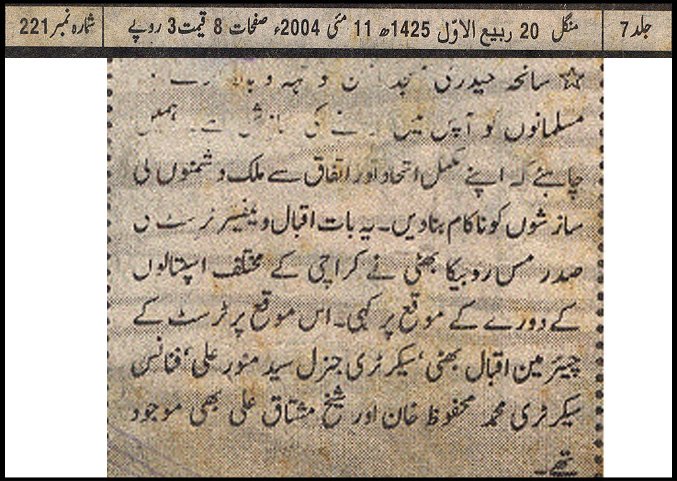 جلد 7 منگل 20 ربیع الاوّل 1425ھ 11 مئی 2004ء صفحات 8 قیمت 3 روپے شمارہ نمبر 221
☆ سانحہ حیدری
مسلمانوں کو آپس میں نے کی سازش ہے۔ ہمیں
چاہئے کہ اپنے مکمل اتحاد اور اتفاق سے ملک دشمنوں کی
سازشوں کو ناکام بنادیں۔ یہ بات اقبال ویلفیئر ٹرسٹ کی
صدر مس روبیکا بھٹی نے کراچی کے مختلف اسپتالوں
کے دورے کے موقع پر کہی۔ اس موقع پر ٹرسٹ کے
چیئرمین اقبال بھٹی، سیکرٹری جنرل سید منور علی، فنانس
سیکرٹری محمد محفوظ خان اور شیخ مشتاق علی بھی موجود
تھے۔